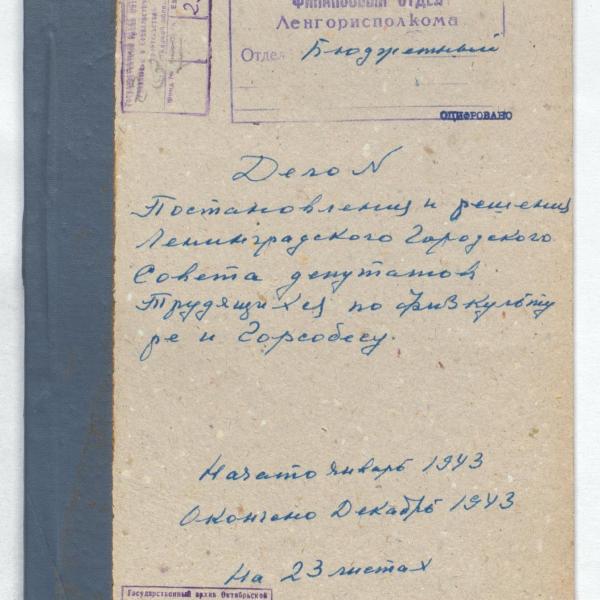 ФИНАНСОВЫЙ ОТДЕЛ
Ленгорисполкома
Отдел Бюджетный
ОЦИФРОВАНО
Дело N
Постановления и решения
Ленинградского Городского
Совета депутатов
Трудящихся по физкульту
ре и Горсобесу.
Начато январь 1943
Окончено Декабрь 1943
На 23 листах
Государственный архив Октябрьской